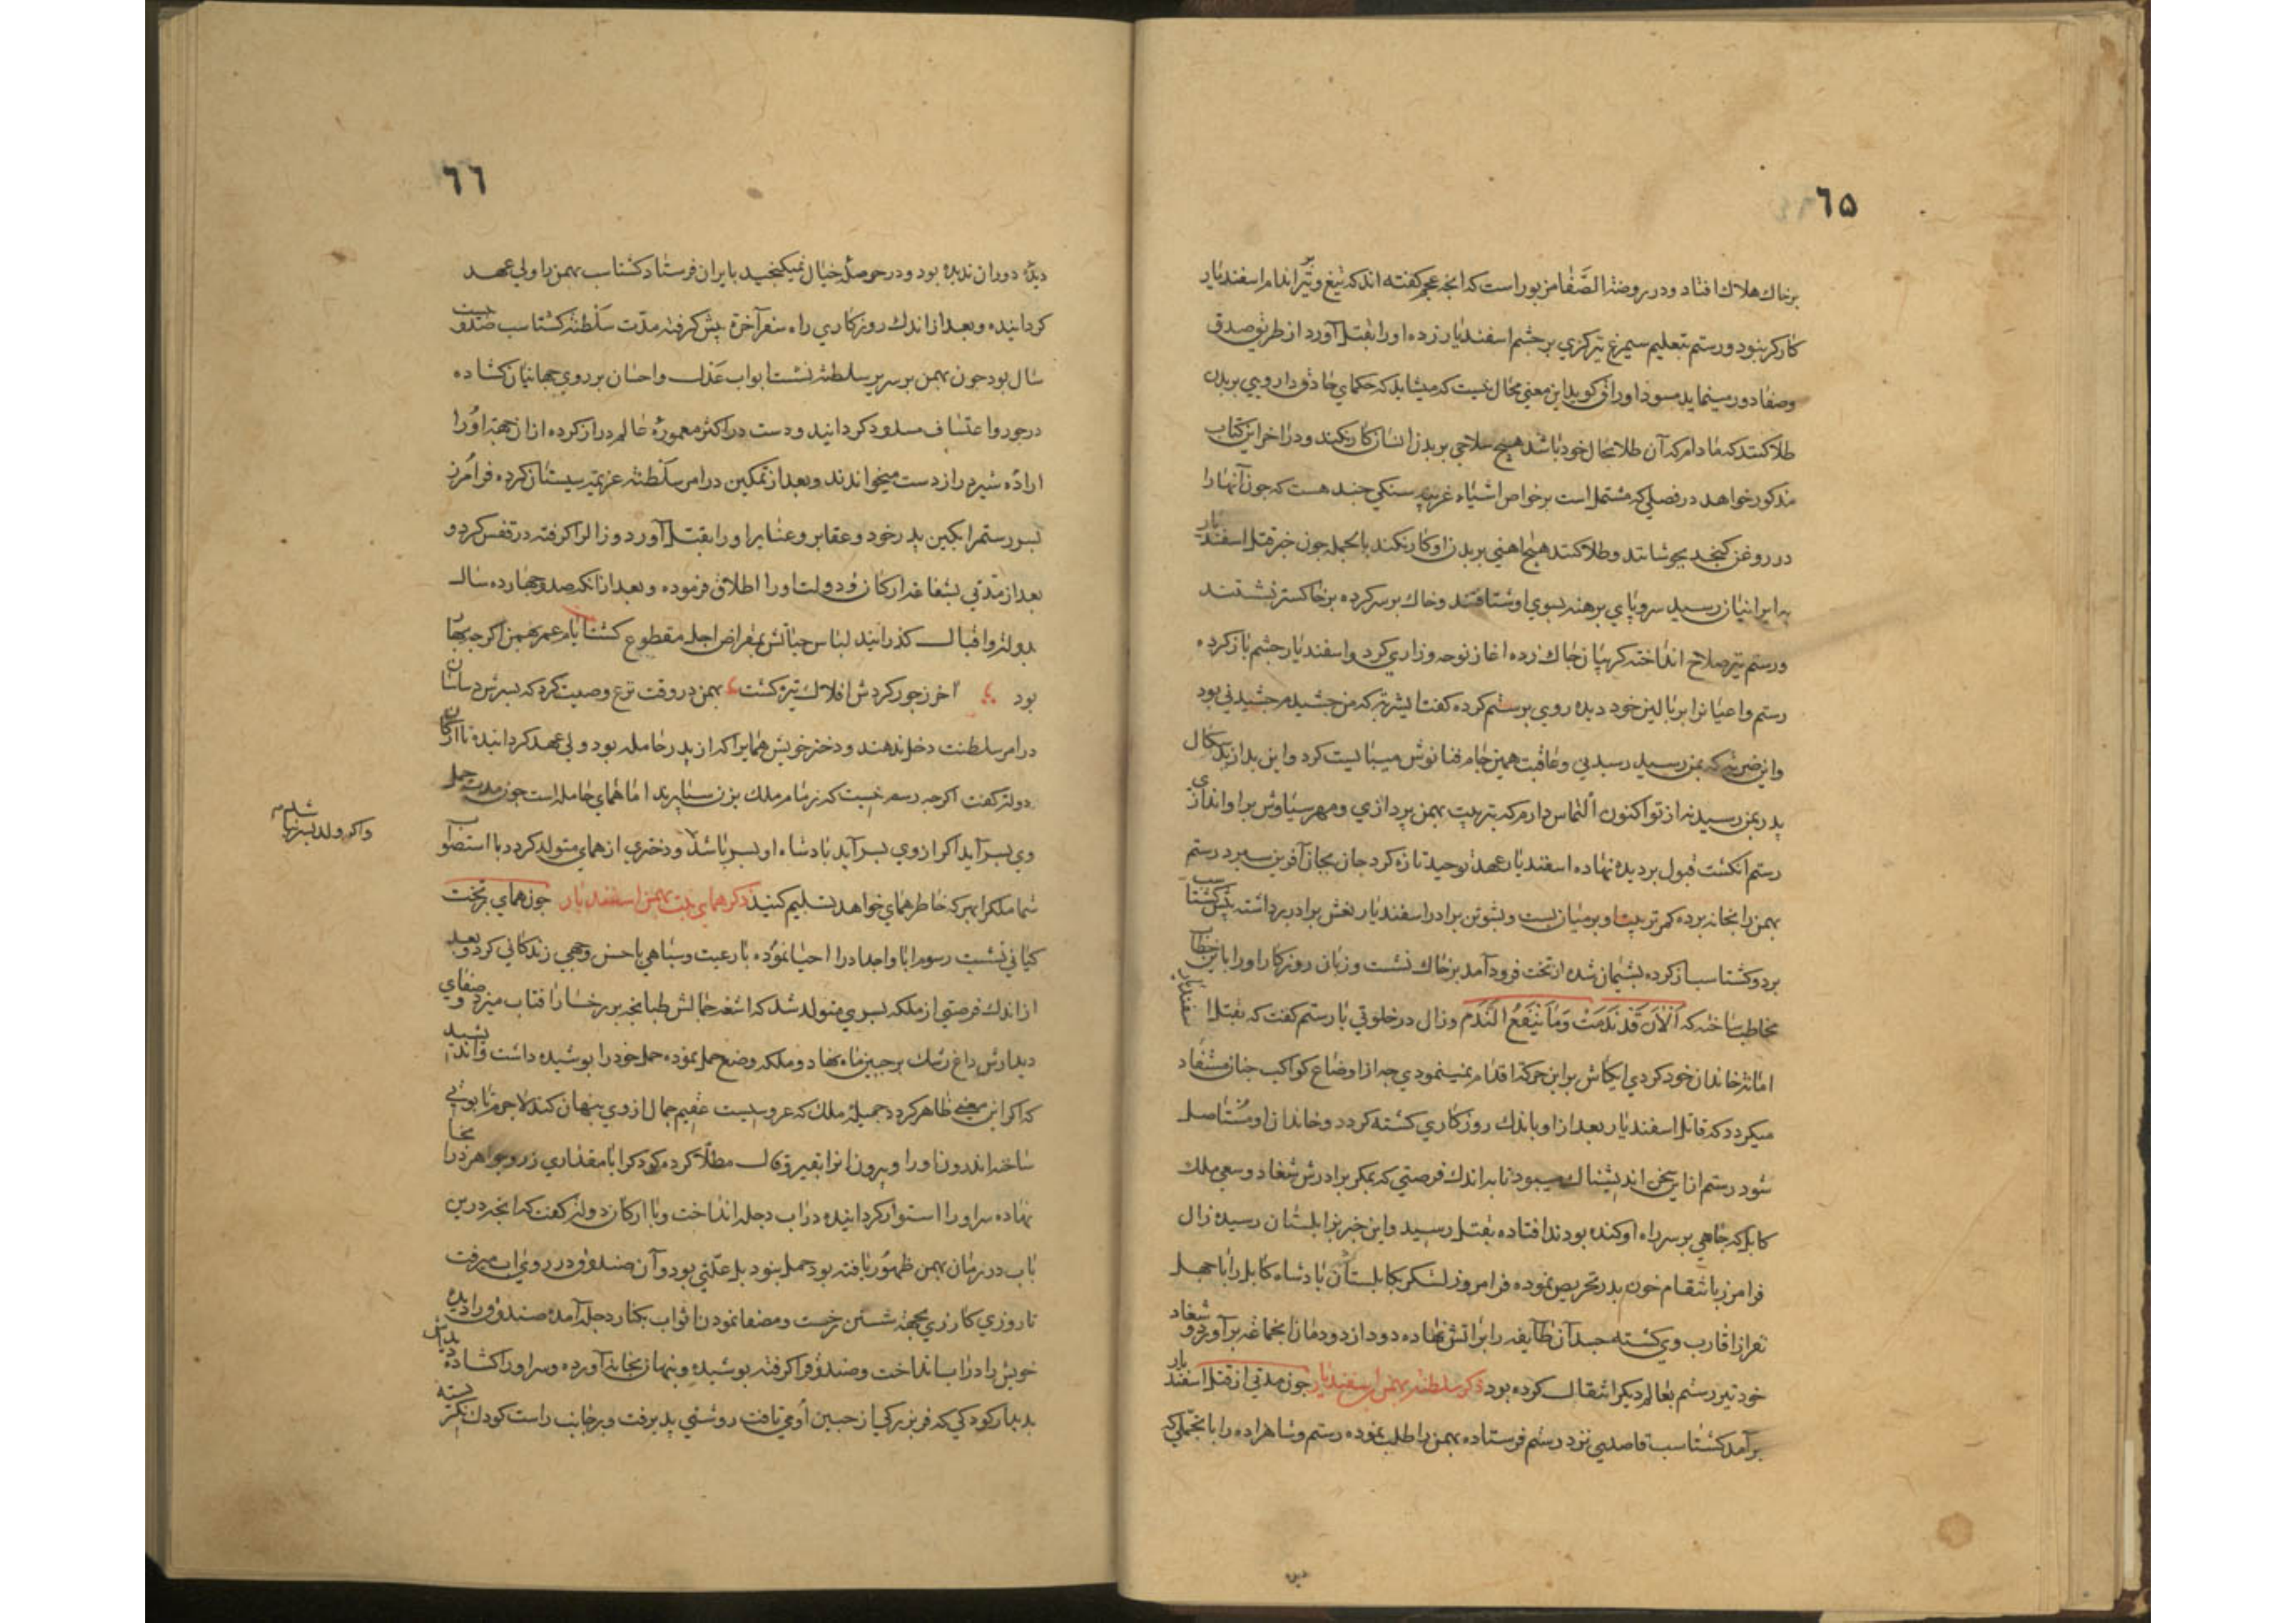 ٦۵
برخاك هلاك افتاد ودر روضة الصَّفا مزبور است كه انچه عجم كفته اند كه تيغ و تير بر اندام اسفنديار
كاركر نبود ورستم بتعليم سيمرغ تير كزي بر چشم اسفنديار زده اورا بقتل آورد از طريق صدق
وصفا دور مينمايد مسود اوراق كويد اين معني محال نيست كه ميشايد كه حكماي حاذق دارويي بر بدن
طلا كنند كه مادام كه آن طلا بحال خود باشد هيچ سلاحي بر بدن انسان كار نكند ودر اخر اين كتاب
مذكور خواهد در فصلي كه مشتمل است بر خواص اشياء غريبه سنكي چند هست كه چون آنها را
در روغن كنجد بجوشانند وطلا كنند هيچ اهني بر بدن او كار نكند بالجمله چون خبر قتل اسفنديار
به ايرانيان رسيد سر وپاي برهنه بسوي او شتافتند وخاك بر سر كرده بر خاكستر نشستند
ورستم تير وسلاح انداخته كريبان چاك زده اغاز نوحه وزاري كرد واسفنديار چشم باز كرده
رستم واعيانرا بر بالين خود ديده روي برستم كرده كفت اين شربتي كه من چشيدم چشيدني بود
واين ضربتي كه بمن رسيد رسيدني وعاقبت همين جام فنا نوش ميبايست كرد واين بد از بدسكال
پدر بمن رسيد نه از تو اكنون التماس دارم كه بتربيت بهمن پردازي ومهر سياوش بر او اندازي
رستم انكشت قبول بر ديده نهاده اسفنديار عهد توحيد تازه كرد جان بجان آفرين سپرد رستم
بهمن را بخانه برده كمر تربيت او بر ميان بست وبشوتن برادر اسفنديار نعش برادر برداشته پيش كشتاسب
برد وكشتاسب از كرده پشيمان شده از تخت فرود آمد بر خاك نشست وزبان روزكار اورا باين خطاب
مخاطب ساخته كه اَلْاٰنَ قَدْ نَدِمْتَ وَمَا يَنْفَعُ النَّدَم وزال در خلوتي با رستم كفت كه بقتل اسفنديار
اماته خاندان خود كردي ايكاش بر اين حركت اقدام نمينمودي چه از اوضاع كواكب چنان مستفاد
ميكردد كه قاتل اسفنديار بعد از او باندك روزكاري كشته كردد وخاندان او مستاصل
شود رستم از اين سخن انديشناك ميبود تا به اندك فرصتي كه بمكر برادرش شغاد وسعي ملك
كابل كه چاهي بر سر راه او كنده بودند افتاده بقتل رسيد واين خبر بزابلستان رسيده زال
فرامرز بانتقام خون پدر تحريص نموده فرامرز لشكر بكابلستان پادشاه كابل را با چهل
نفر از اقارب وي كشته جسد آن طايفه را بر اتش نهاده دود از دودمان انجماعه برآورد وشغاد
خود بتير رستم بعالم ديكر انتقال كرده بود ذكر سلطنة بهمن بن اسفنديار چون مدتي از قتل اسفنديار
برآمد كشتاسب قاصدي نزد رستم فرستاده بهمن را طلب نموده رستم وشاهزاده را با تجملي كه
ديده
٦٦
ديدۀ دوران نديده بود ودر حوصلۀ خيال نميكنجيد بايران فرستاد كشتاسب بهمن را ولي عهد
كردانيده وبعد از اندك روزكاري راه سفر آخرة پيش كرفته مدّت سلطنة كشتاسب صد وبيست
سال بود چون بهمن بر سرير سلطنة نشست ابواب عدل واحسان بر روي جهانيان كشاده
در جور واعتساف مسدود كردانيد ودست در اكثر معمورۀ عالم دراز كرده از انجهة اورا
ارادۀ شير دراز دست ميخواندند وبعد از تمكين در امر سلطنة عزيمة سيستان كرده فرامرز
پسر رستمرا بكين پدر خود وعقابر وعشاير اورا بقتل آورد وزالرا كرفته در قفس كرد و
بعد از مدتي بشفاعة اركان دولت اورا اطلاق فرموده وبعد از انكه صد وچهارده سال
بدولة واقبال كذرانيد لباس حياتش بمقراض اجل مقطوع كشت ايام عمر بهمن اكر چه بهار
بود آخر ز جور كردش افلاك تيره كشت بهمن در وقت نزع وصيت كرد كه پسرش ساسان
در امر سلطنت دخل ندهند ودختر خويش همايرا كه از پدر حامله بود ولي عهد كردانيده با اركان
دولة كفت اكر چه رسم نيست كه زمام ملك بزن سپارند اما هماي حامله است چون مدت حمل
وي بسر آيد اكر از وي پسر آيد پادشاه او پسر باشد ودختري از هماي متولد كردد با استصواب
شما ملكرا بهر كه خاطر هماي خواهد تسليم كنيد ذكر هماي بنت بهمن اسفنديار چون هماي بر تخت
واكر ولد پسر نباشد م
كياني نشست رسوم ابا واجداد را احيا نموده با رعيت وسپاهي باحسن وجهي زندكاني كرد وبعد
از اندك فرصتي از ملكه پسري متولد شد كه اشعه جمالش طبانچه بر رخسار افتاب ميزد وصفاي
ديدارش داغ رشك بر جبين ماه نهاد وملكه وضع حمل نموده حمل خود را پوشيده داشت وانديشيد
كه اكر اين معني ظاهر كردد جميلۀ ملك كه عروسيست عقيم جمال از وي پنهان كند لاجرم تابوتي
ساخته اندرون اورا وبيرون انرا بقير وقال مطلا كرده كودكرا با مقداري زر وجواهر در انجا
نهاده سر اورا استوار كردانيده در اب دجله انداخت وبا اركان دولة كفت كه انچه درين
باب در زمان بهمن ظهور يافته بود حمل نبود بل علّتي بود وآن صندوق در روي اب ميرفت
تا روزي كازري بجهة شستن رخت ومصفا نمودن اثواب بكنار دجله آمده صندوق را ديده
خويش را در اب انداخت وصندوق را كرفته پوشيده وپنهان بخانه آورده وسر اورا كشاده ديدش
بديدار كودكي كه فر بزركي از جبين او مي تافت روشني پذيرفت وبر جانب راست كودك نكريسته